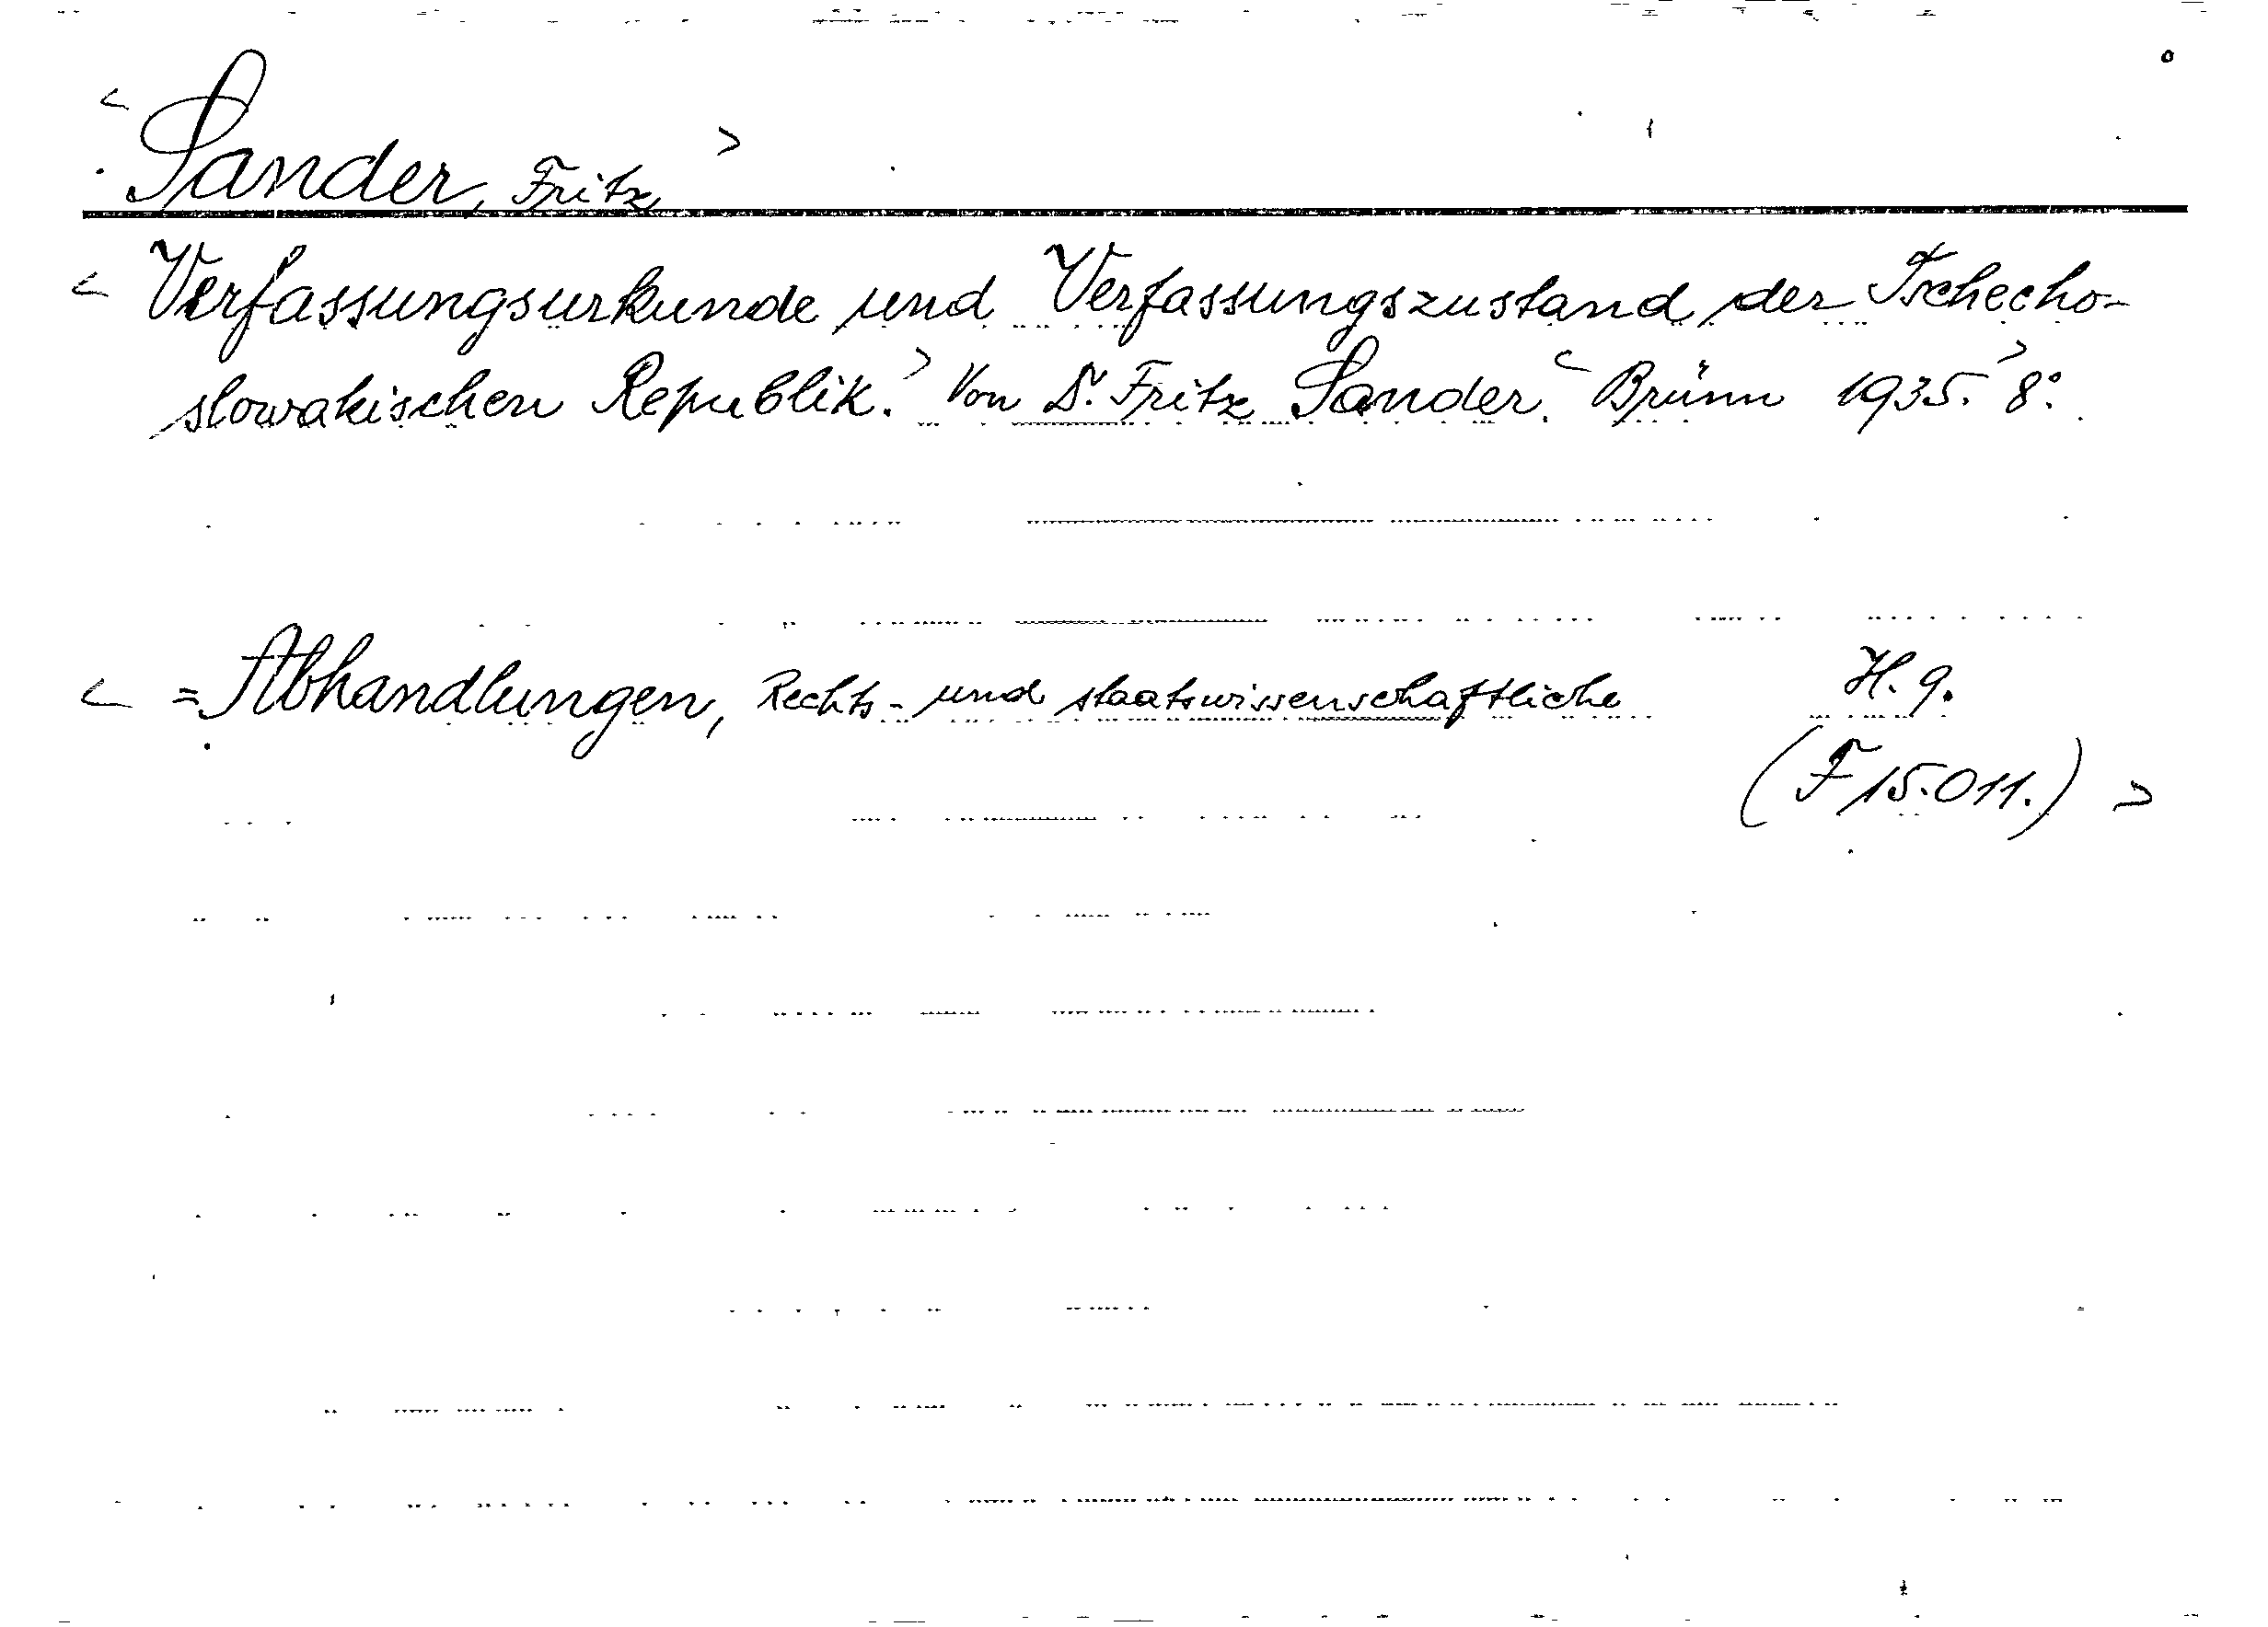 < Sander, Fritz >
< Verfassungsurkunde und Verfassungszustand der Tschecho-
slowakischen Republik. > Von Dr. Fritz Sander. < Brünn 1935. > 8°.
< = Abhandlungen, Rechts- und staatswissenschaftliche H. 9.
(F 15.011.) >